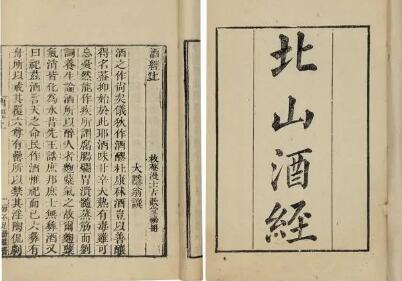 北山酒經
酒經上
枚菴漫士古歡堂祕冊
大隱翁譔
酒之作尚矣儀狄作酒醪杜康秫酒豈以善釀
得名蓋抑始於此耶酒味甘辛大熱有毒雖可
忘憂然能作疾所謂腐腸爛胃潰髓蒸筋而劉
詞養生論酒所以醉人者麴糵氣之故爾麴糵
氣消皆化為水昔先王誥庶邦庶士無彝酒又
曰祀茲酒言天之命民作酒惟祀而已六彝有
舟所以戒其覆六尊有罍所以禁其淫陶侃劇